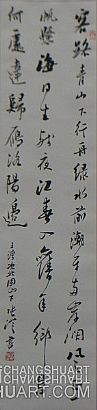 客路青山下行舟綠水前潮平兩岸闊風正一
帆懸海日生殘夜江春入舊年鄉書
何處達歸雁洛陽邊
王灣次北固山下
書